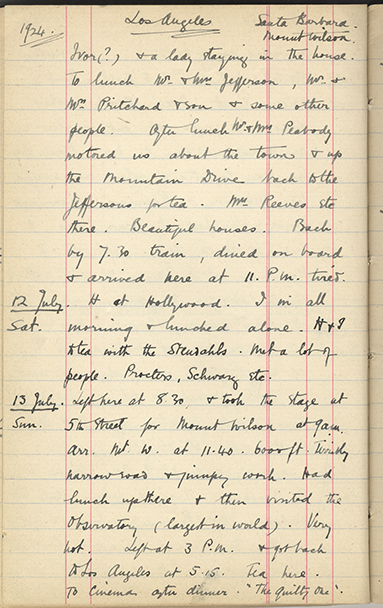 1924. Los Angeles Santa Barbara.
Mount Wilson.
Ivor (?) & a lady staying in the house.
To lunch Mr. & Mrs. Jefferson, Mr. &
Mrs. Pritchard & son & some other
people. After lunch Mr. & Mrs. Peabody
motored us about the town & up
the Mountain Drive back to the
Jeffersons for tea. Mrs. Reeves etc
there. Beautiful houses. Back
by 7.30 train, dined on board
& arrived here at 11. P.M. tired.
12 July. H at Hollywood. I in all
Sat. morning & lunched alone. H & I
to tea with the Stendahls. Met a lot of
people. Procters, Schwarz etc.
13 July. Left here at 8.30 & took the stage at
Sun. 5th Street for Mount Wilson at 9 am.
arr. Mt. W. at 11.40. 6000 ft.
narrow road & jumpy work. Had
lunch up there & then visited the
Observatory (largest in world). Very
hot. Left at 3 P.M. & got back
to Los Angeles at 5.15. Tea here.
To Cinema after dinner. "The Guilty One".